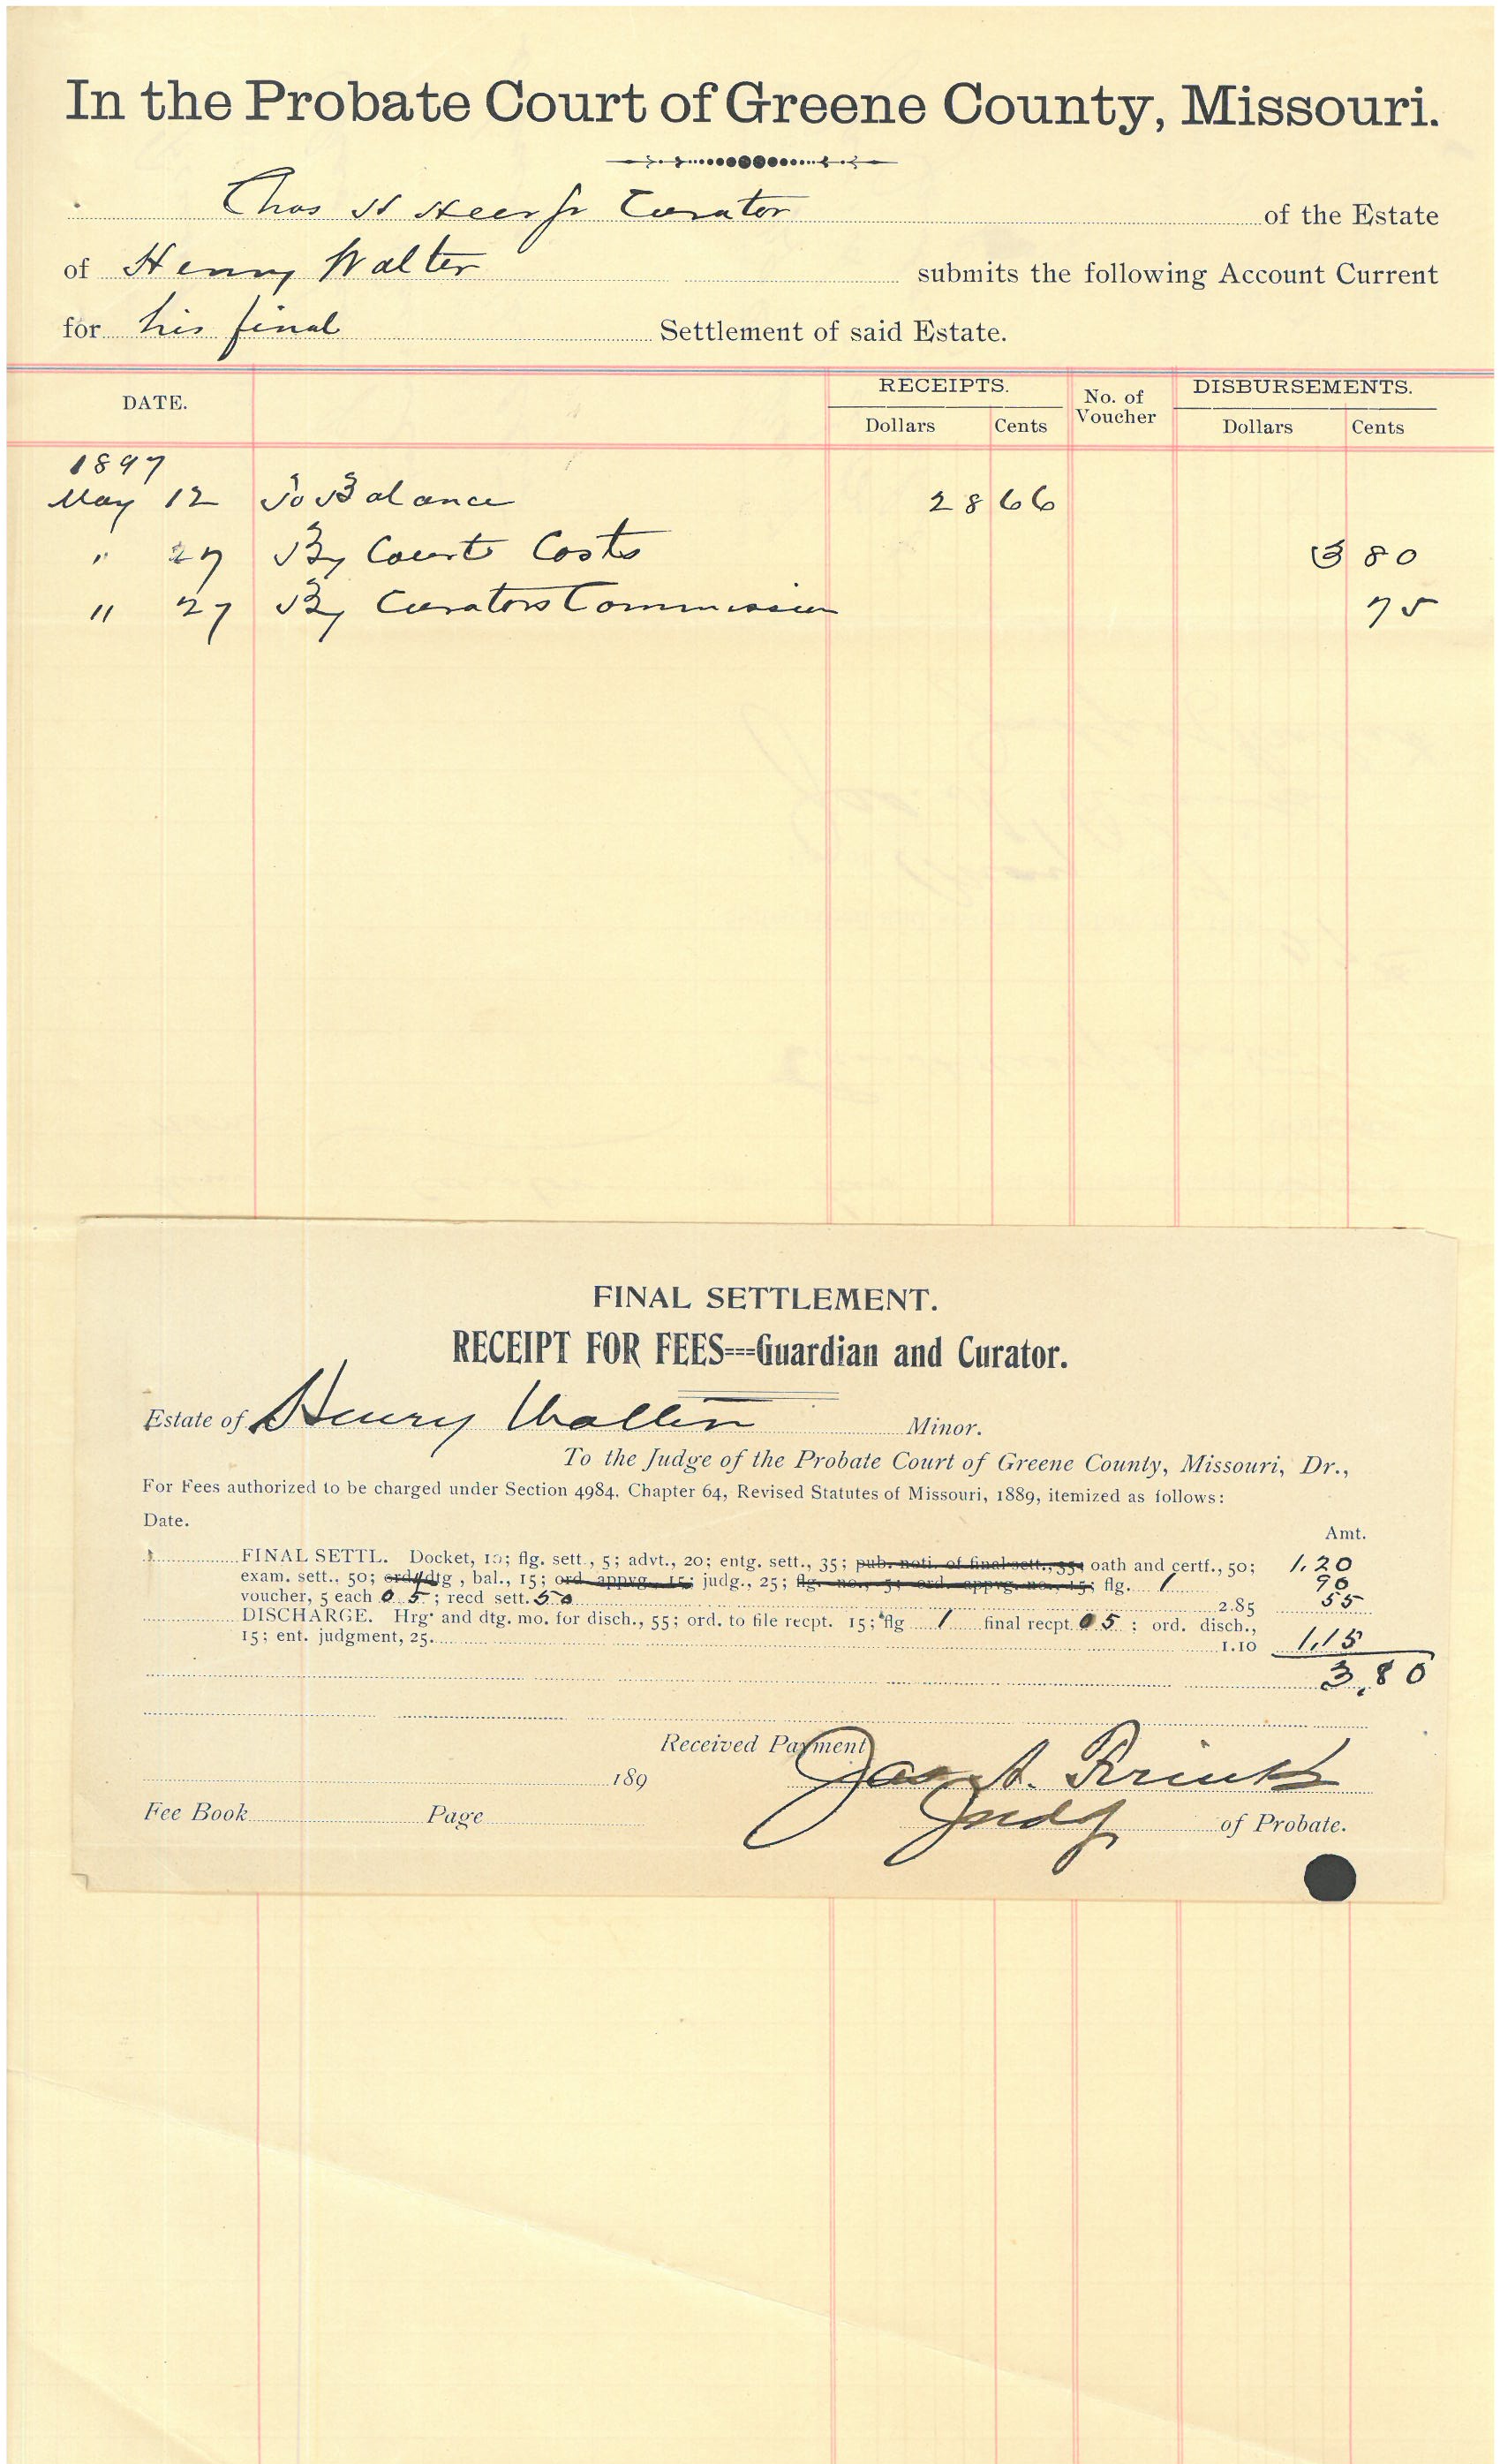 In the Probate Court of Greene County, Missouri.
Chas H Heer Jr Curator of the Estate
of Henry Walter submits the following Account Current
for his final Settlement of said Estate.
DATE. RECEIPTS. No. of Voucher DISBURSEMENTS.
Dollars Cents Dollars Cents
1897
May 12 To Balance 28 66
" 27 By Court Costs 3 80
" 27 By Curators Commission 75
FINAL SETTLEMENT.
RECEIPT FOR FEES---Guardian and Curator.
Estate of Henry Walter Minor.
To the Judge of the Probate Court of Greene County, Missouri, Dr.,
For Fees authorized to be charged under Section 4984, Chapter 64, Revised Statutes of Missouri, 1889, itemized as follows:
Date. Amt.
FINAL SETTL. Docket, 10; flg. sett., 5; advt., 20; entg. sett., 35; pub. noti. of final sett., 35; oath and certf., 50; 1.20
exam. sett., 50; ord. dtg, bal., 15; ord. appvg., 15; judg., 25; flg. no., 5; ord. appvg. no., 15; flg. 1 90
voucher, 5 each 05; recd sett. 50 2.85 55
DISCHARGE. Hrg. and dtg. mo. for disch., 55; ord. to file recpt. 15; flg 1 final recpt. 05; ord. disch.,
15; ent. judgment, 25. 1.10 1.15
3.80
Received Payment
189 Jas. A.
Fee Book Page Judg of Probate.